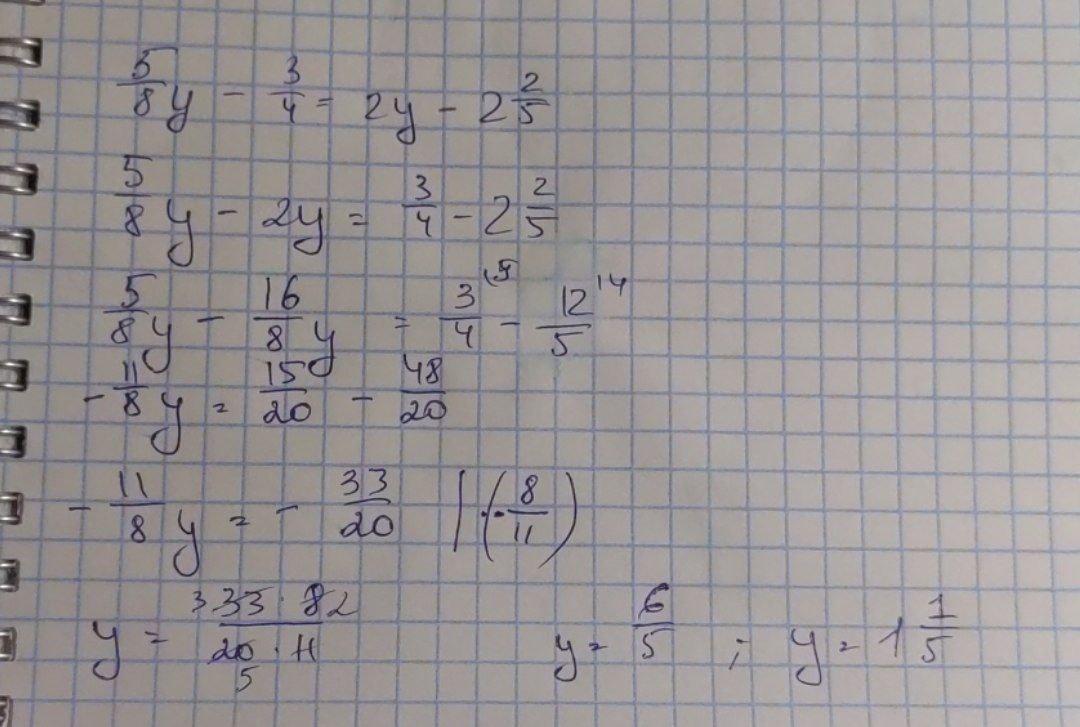 5/8 y - 3/4 = 2y - 2 2/5
5/8 y - 2y = 3/4 - 2 2/5
5/8 y - 16/8 y = 3/4 (5 - 12/5 14
- 11/8 y = 15/20 - 48/20
- 11/8 y = - 33/20 | · (- 8/11)
y = 3 33 · 8 2 / 20 · 11 5 y = 6/5 ; y = 1 1/5